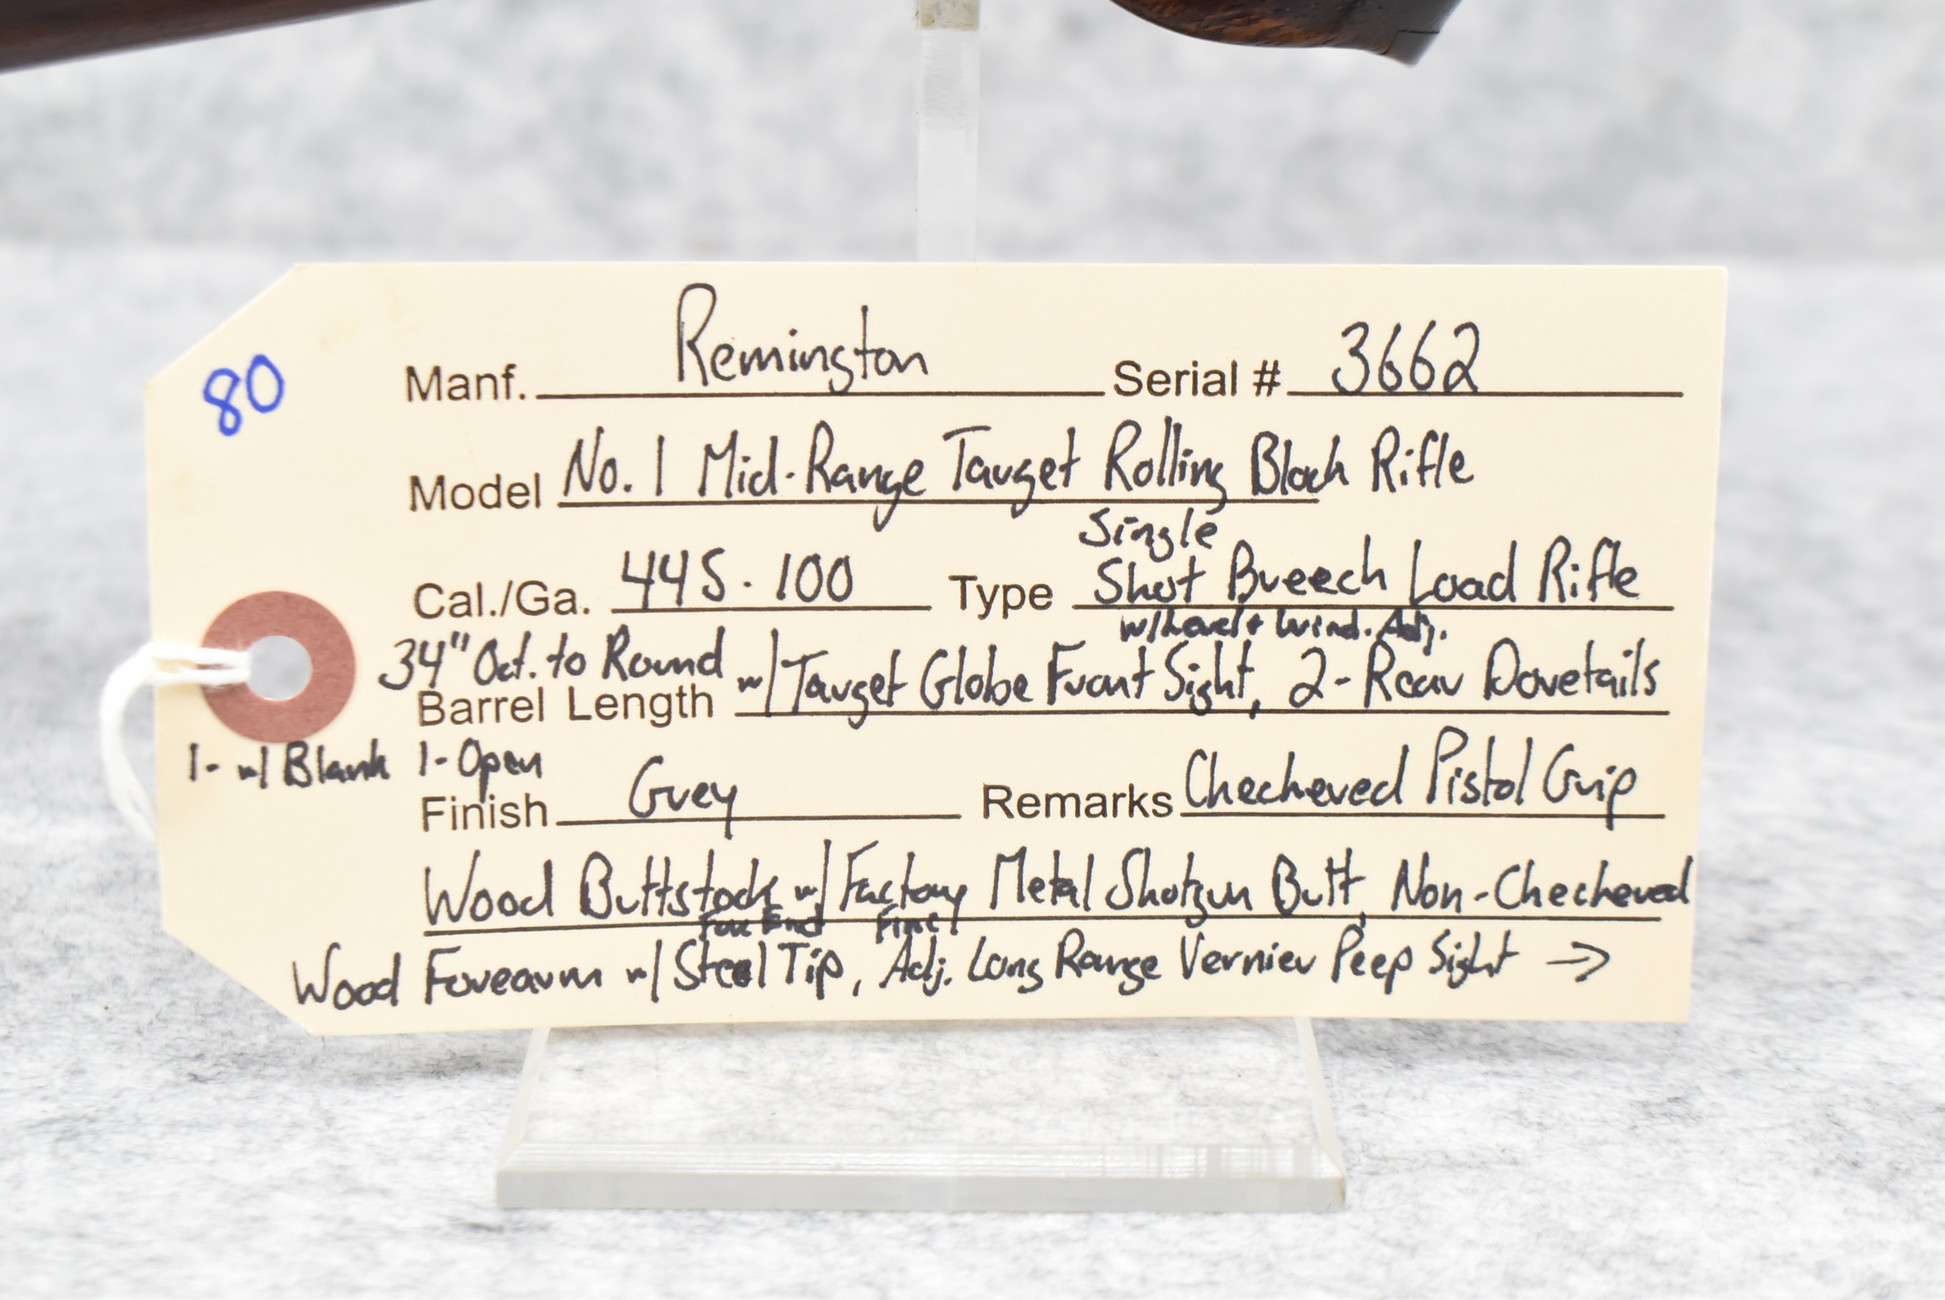 80
Manf. Remington Serial # 3662
Model No. 1 Mid-Range Target Rolling Block Rifle
Single
Cal./Ga. 445.100 Type Shot Breech Load Rifle
w/Level + Wind. Adj.
34" Oct. to Round
Barrel Length w/ Target Globe Front Sight, 2-Rear Dovetails
1- w/ Blank 1-Open
Finish Grey Remarks Checkered Pistol Grip
Wood Buttstock w/ Factory Metal Shotgun Butt, Non-Checkered
Fore End Fine
Wood Forearm w/ Steel Tip, Adj. Long Range Vernier Peep Sight →